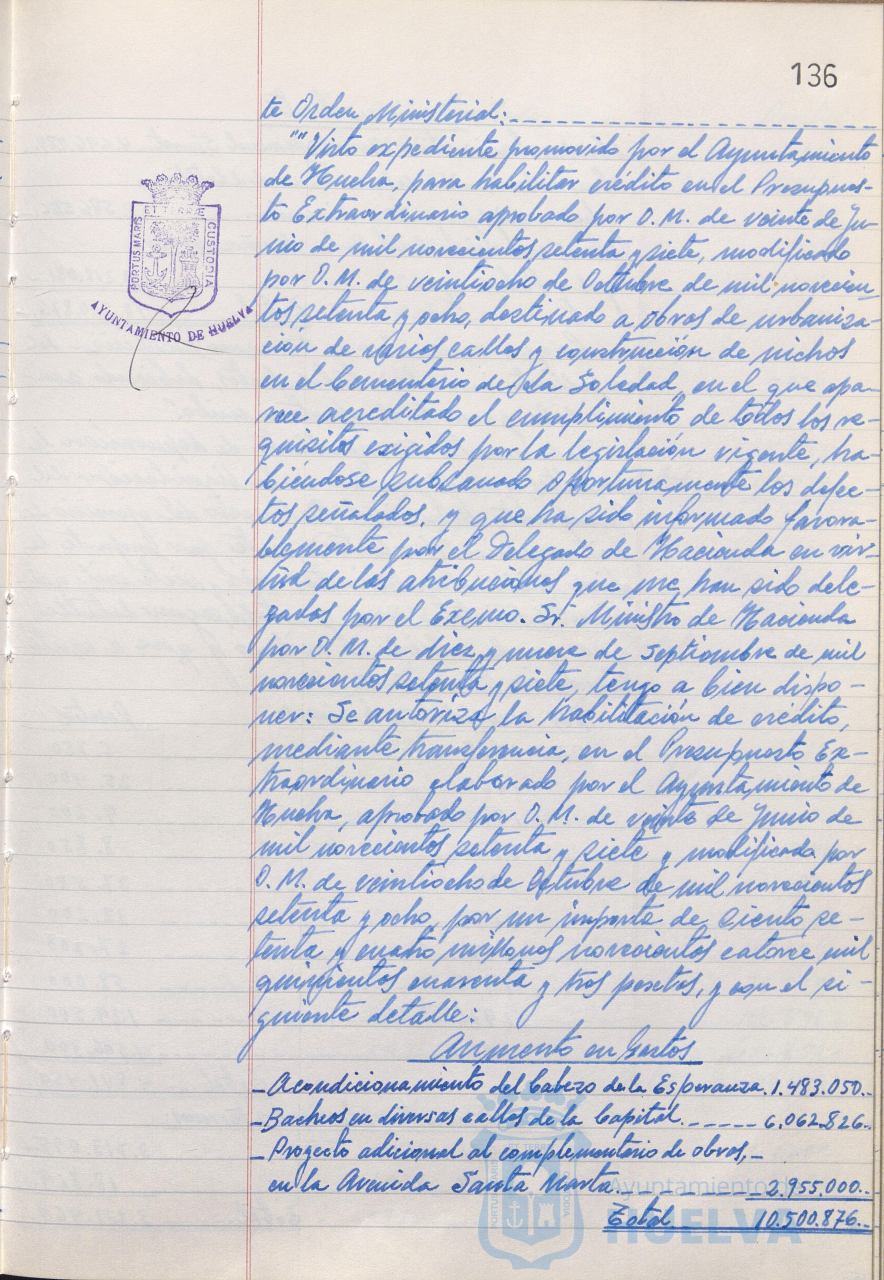 136
te Orden Ministerial:
""Visto expediente promovido por el Ayuntamiento
de Huelva, para habilitar crédito en el Presupues-
to Extraordinario aprobado por O. M. de veinte de Ju-
nio de mil novecientos setenta y siete, modificado
por O. M. de veintiocho de Octubre de mil novecien-
tos setenta y ocho, destinado a obras de urbaniza-
ción de varios calles y construcción de nichos
en el Cementerio de la Soledad, en el que apa-
rece acreditado el cumplimiento de todos los re-
quisitos exigidos por la legislación vigente, ha-
biéndose subsanado oportunamente los defec-
tos señalados, y que ha sido informado favora-
blemente por el Delegado de Hacienda en vir-
tud de las atribuciones que me han sido dele-
gadas por el Excmo. Sr. Ministro de Hacienda
por O. M. de diez y nueve de Septiembre de mil
novecientos setenta y siete, tengo a bien dispo-
ner: Se autoriza la habilitación de crédito,
mediante transferencia, en el Presupuesto Ex-
traordinario elaborado por el Ayuntamiento de
Huelva, aprobado por O. M. de veinte de Junio de
mil novecientos setenta y siete y modificada por
O. M. de veintiocho de Octubre de mil novecientos
setenta y ocho, por un importe de Ciento se-
tenta y cuatro millones novecientos catorce mil
quinientos cuarenta y tres pesetas, y con el si-
guiente detalle:
Aumento en Gastos
- Acondicionamiento del Cabezo de la Esperanza. 1.483.050.-
- Bacheos en diversas calles de la Capital. 6.062.826.-
- Proyecto adicional al complementario de obras,-
en la Avenida Santa Marta. 2.955.000.-
Total 10.500.876.-
PORTUS MARIS ET TERRE CUSTODIA
AYUNTAMIENTO DE HUELVA
Ayuntamiento de
HUELVA